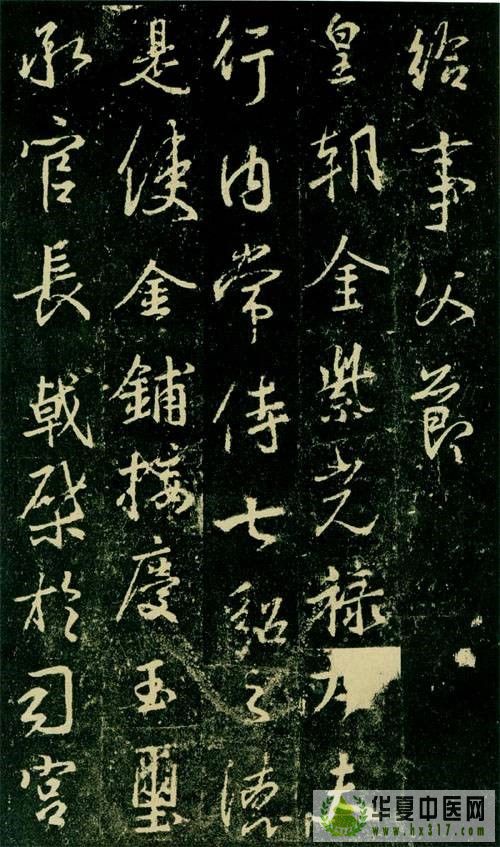 給事父節
皇朝金紫光祿大夫
行內常侍七貂之德
是使金鋪接慶玉璽
承官長戟棨於司宮
华夏中医网
www.hx317.com